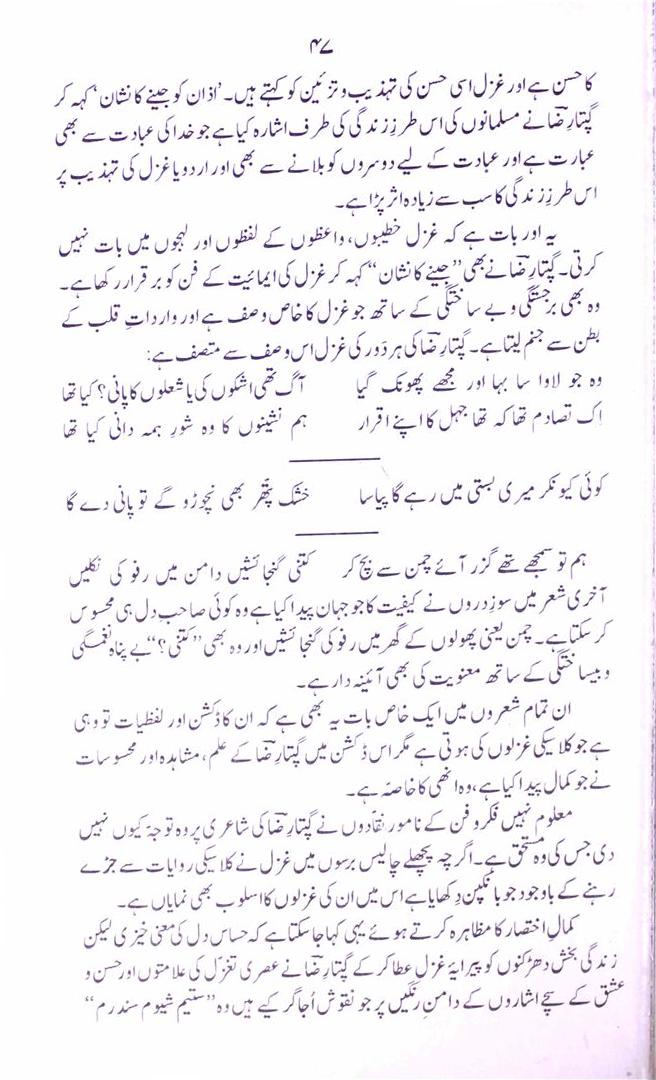 ۴۷
کا حسن ہے اور غزل اسی حسن کی تہذیب و تزئین کو کہتے ہیں۔ 'اذان کو جینے کا نشان' کہہ کر
گپتا رضاؔ نے مسلمانوں کی اس طرزِ زندگی کی طرف اشارہ کیا ہے جو خدا کی عبادت سے بھی
عبارت ہے اور عبادت کے لیے دوسروں کو بلانے سے بھی اور اردو یا غزل کی تہذیب پر
اس طرزِ زندگی کا سب سے زیادہ اثر پڑا ہے۔
یہ اور بات ہے کہ غزل خطیبوں، واعظوں کے لفظوں اور لہجوں میں بات نہیں
کرتی۔ گپتا رضاؔ نے بھی ''جینے کا نشان'' کہہ کر غزل کی ایمائیت کے فن کو برقرار رکھا ہے۔
وہ بھی برجستگی و بے ساختگی کے ساتھ جو غزل کا خاص وصف ہے اور وارداتِ قلب کے
بطن سے جنم لیتا ہے۔ گپتا رضاؔ کی ہر دَور کی غزل اس وصف سے متصف ہے:
وہ جو لاوا سا بہا اور مجھے پھونک گیا آگ تھی اشکوں کی یا شعلوں کا پانی؟ کیا تھا
اِک تصادم تھا کہ تھا جہل کا اپنے اقرار ہم نشینوں کا وہ شورِ ہمہ دانی کیا تھا
کوئی کیونکر میری بستی میں رہے گا پیاسا خشک پتّھر بھی نچوڑو گے تو پانی دے گا
ہم تو سمجھے تھے گزر آئے چمن سے بچ کر کتنی گنجائشیں دامن میں رفو کی نکلیں
آخری شعر میں سوزِ دروں نے کیفیت کا جو جہان پیدا کیا ہے وہ کوئی صاحب دل ہی محسوس
کر سکتا ہے۔ چمن یعنی پھولوں کے گھر میں رفو کی گنجائشیں اور وہ بھی ''کتنی؟'' بے پناہ نغمگی
و بیساختگی کے ساتھ معنویت کی بھی آئینہ دار ہے۔
ان تمام شعروں میں ایک خاص بات یہ بھی ہے کہ ان کا ڈکشن اور لفظیات تو وہی
ہے جو کلاسیکی غزلوں کی ہوتی ہے مگر اس ڈکشن میں گپتا رضاؔ کے علم، مشاہدہ اور محسوسات
نے جو کمال پیدا کیا ہے، وہ انھی کا خاصّہ ہے۔
معلوم نہیں فکر و فن کے نامور نقّادوں نے گپتا رضاؔ کی شاعری پر وہ توجہّ کیوں نہیں
دی جس کی وہ مستحق ہے۔ اگرچہ پچھلے چالیس برسوں میں غزل نے کلاسیکی روایات سے جڑے
رہنے کے باوجود جو بانکپن دِکھایا ہے اس میں ان کی غزلوں کا اسلوب بھی نمایاں ہے۔
کمالِ اختصار کا مظاہرہ کرتے ہوئے یہی کہا جا سکتا ہے کہ حساس دل کی معنی خیزی لیکن
زندگی بخش دھڑکنوں کو پیرایۂ غزل عطا کر کے گپتا رضاؔ نے عصری تغزّل کی علامتوں اور حسن و
عشق کے سچے اشاروں کے دامنِ رنگیں پر جو نقوش اُجاگر کیے ہیں وہ ''ستیم شیوم سندرم''